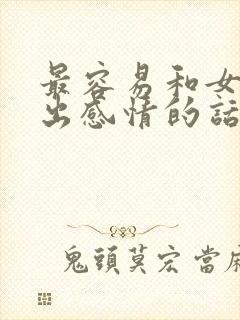 最容易和女
出感情的話
鬼頭莫宏當